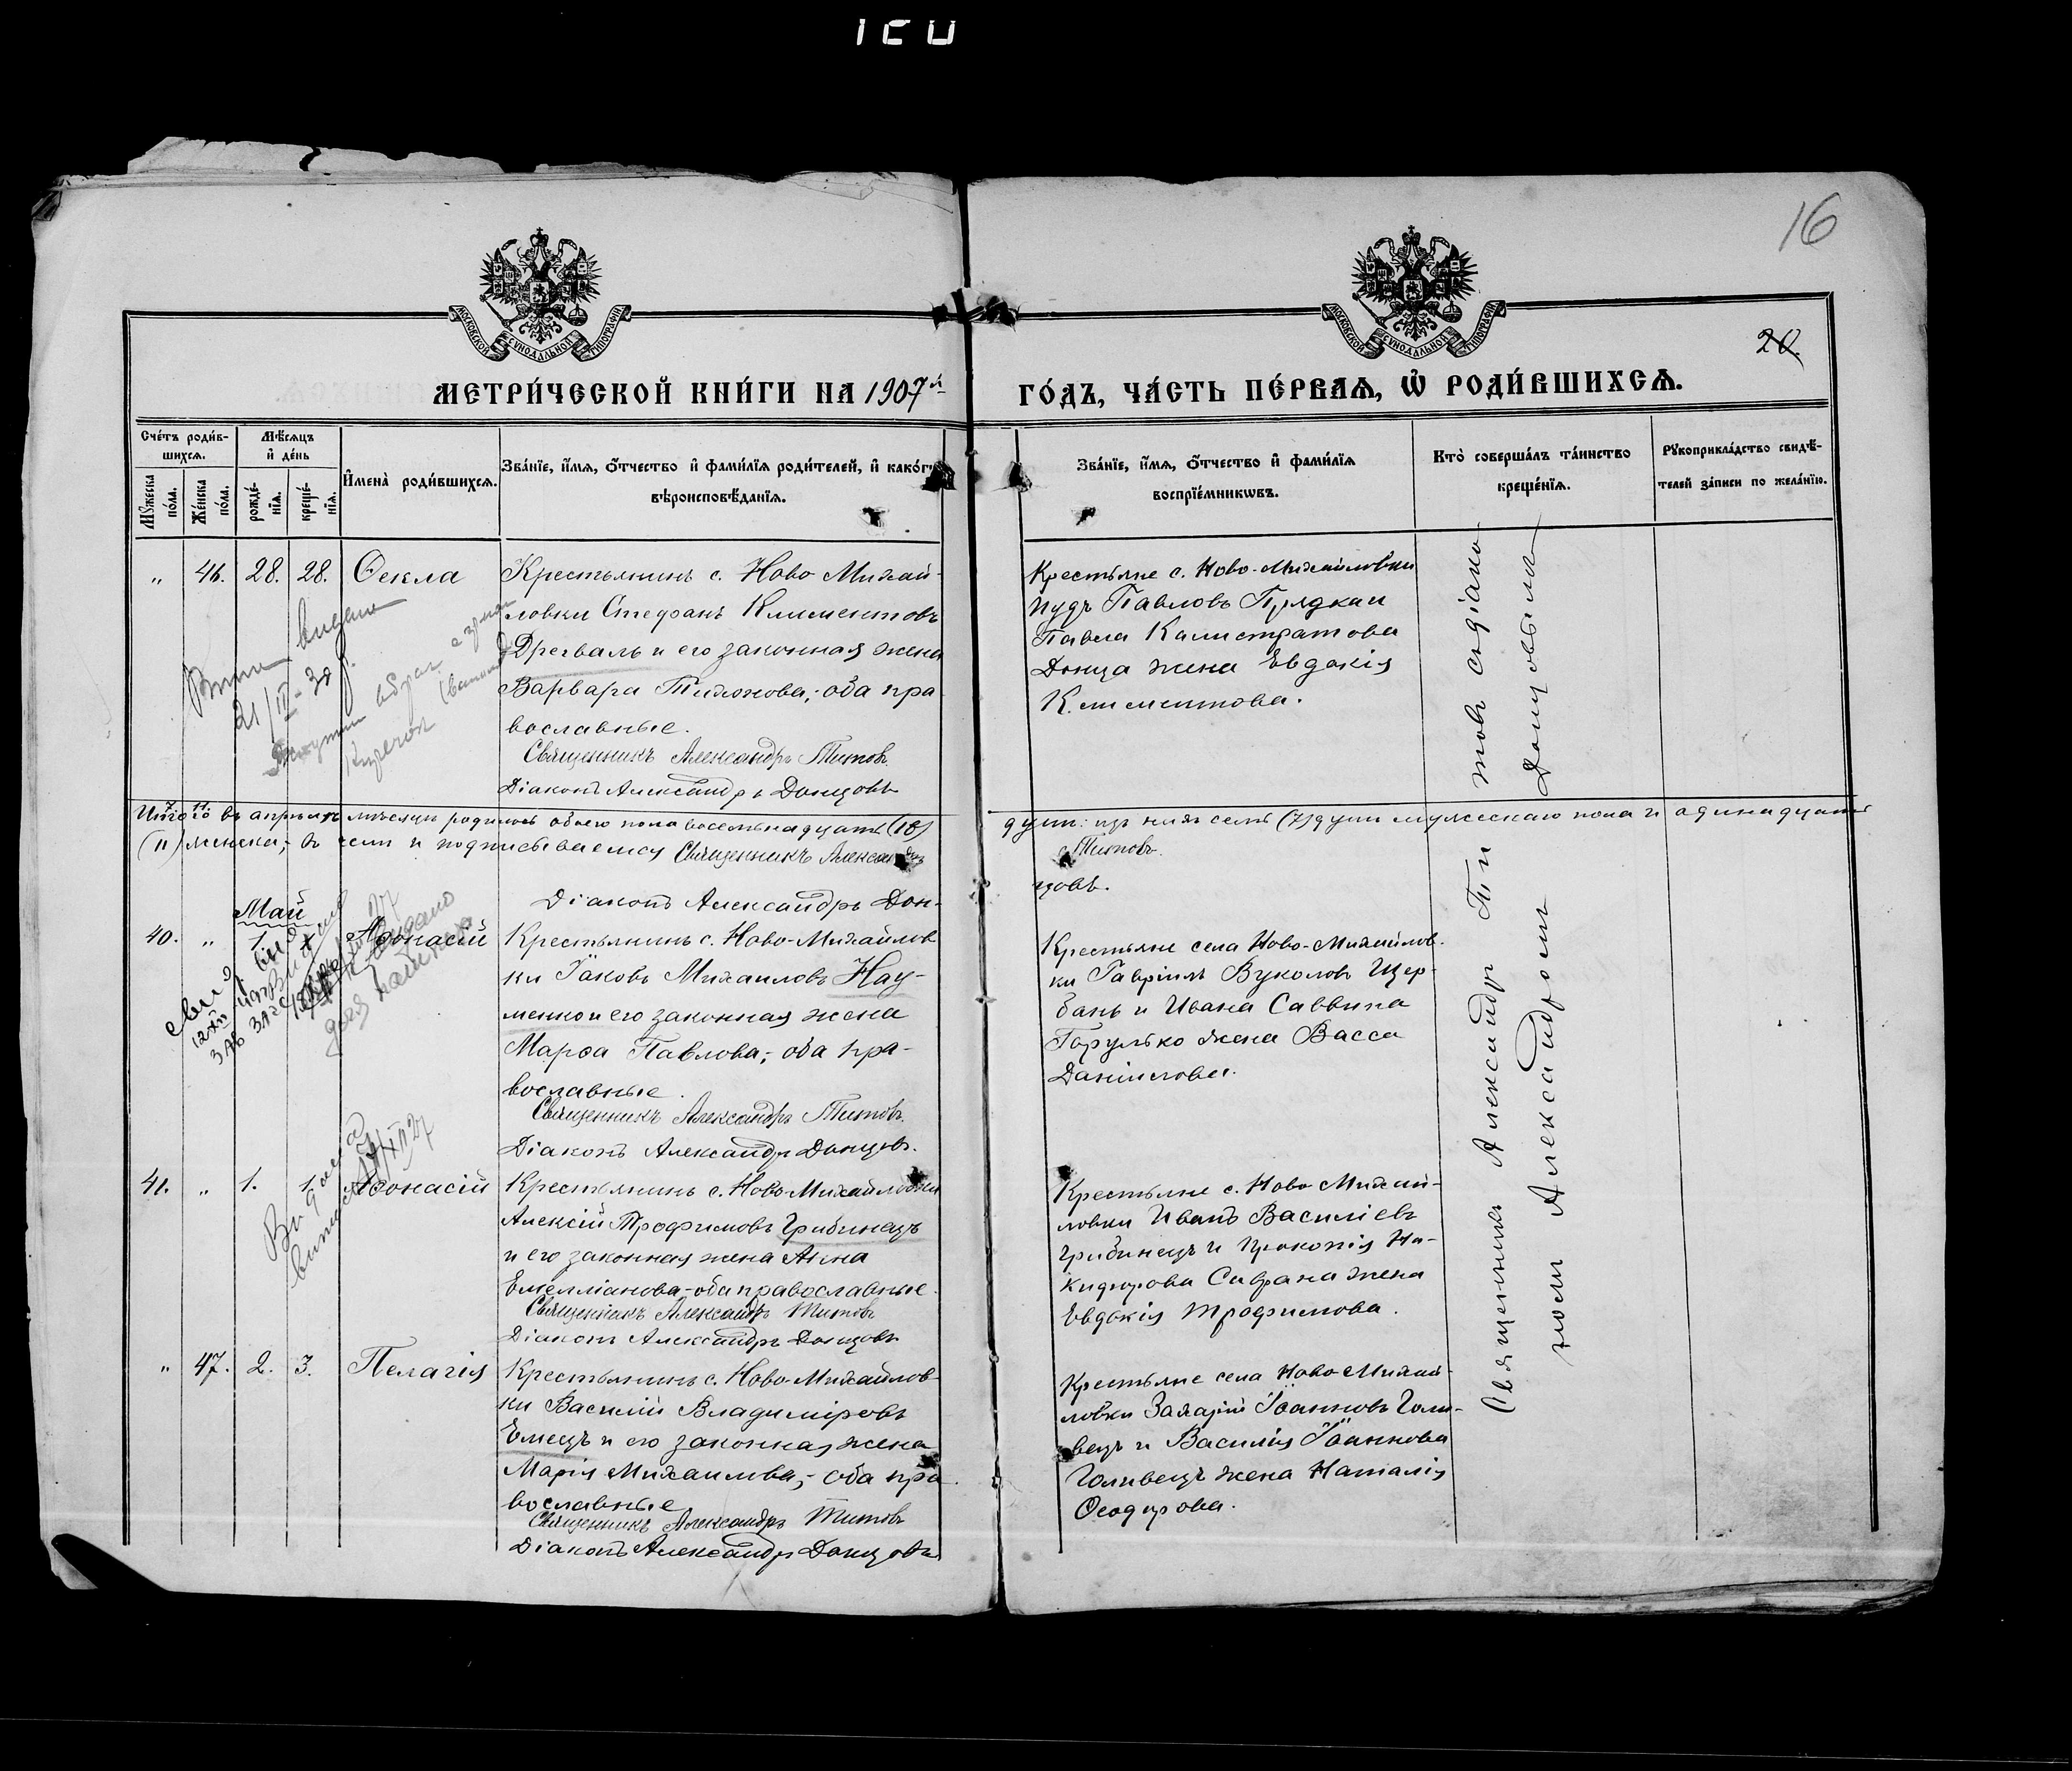 16
20.
МОСКОВСКОЙ СУНОДАЛЬНОЙ ТИПОГРАФІИ
МОСКОВСКОЙ СУНОДАЛЬНОЙ ТИПОГРАФІИ
МЕТРИ́ЧЕСКОЙ КНИ́ГИ НА 1907й
ГО́ДЪ, ЧА́СТЬ ПЕ́РВАѦ, Ѡ҆ РОДИ́ВШИХСѦ.
Сче́тъ роди́в-
шихсѧ.
Мꙋ́жеска по́ла.
Же́нска по́ла.
Мѣ́сѧцъ
и҆ де́нь
рожде́-
нїѧ.
креще́-
нїѧ.
И҆мена̀ роди́вшихсѧ.
Зва́нїе, и҆́мѧ, ѻ҆́тчество и҆ фами́лїѧ роди́телей, и҆ како́гѡ
вѣроисповѣ́данїѧ.
Зва́нїе, и҆́мѧ, ѻ҆́тчество и҆ фами́лїѧ
воспрїе́мникѡвъ.
Кто̀ соверша́лъ та́инство
креще́нїѧ.
Рꙋкоприкла́дство свидѣ́-
телей за́писи по жела́нїю.
„ 46. 28. 28. Ѳекла
Крестьянинъ с. Ново Михай-
ловки Стефанъ Климентовъ
Дрегваль и его законная жена
Варвара Тихонова; оба пра
вославные.
Священникъ Александръ Титовъ
Діаконъ Александръ Донцовъ
Крестьяне с. Ново-Михайловки
Павловъ
Павла Калистратова
Донца жена Евдокія
Климентова.
21/II-38
Итого въ апрѣлѣ мѣсяцѣ родилось обоего пола восемьнадцать (18)
7. 11.
душъ: изъ нихъ семь (7) душъ мужескаго пола и одинадцать
(11) женска; въ чемъ и подписываемся Священникъ Александръ
Титовъ.
Діаконъ Александръ Дон-
цовъ.
Май
40. „ 1. Аѳонасій
Крестьянинъ с. Ново-Михайлов
ки Іаковъ Михаиловъ Нау-
менко и его законная жена
Марѳа Павлова; оба пра-
вославные.
Священникъ Александръ Титовъ.
Діаконъ Александръ Донцовъ.
Крестьяне села Ново-Михайлов-
ки Гавріилъ Вуколовъ Щер-
бань и Ивана Саввина
Горулько жена Васса
Даніилова.
41. „ 1. 1. Аѳонасій
Крестьянинъ с. Ново-Михайловки
Алексій Трофимовъ Грибинецъ
и его законная жена Анна
Емелліанова,-оба православные.
Священникъ Александръ Титовъ
Діаконъ Александръ Донцовъ
Крестьяне с. Ново Михай-
ловки Иванъ Василіевъ
Грибинецъ и Прокопія Ни-
кифорова Саврана жена
Евдокія Трофимова.
„ 47. 2. 3. Пелагія
Крестьянинъ с. Ново-Михайлов-
ки Василій Владиміровъ
Емецъ и его законная жена
Марія Михаилова,- оба пра
вославные
Священникъ Александръ Титовъ
Діаконъ Александръ Донцовъ
Крестьяне села Ново Михай-
ловки Захарій Іоанновъ Голи-
вецъ и Василія Іоаннова
Голивецъ жена Наталія
Ѳеодорова.
Священникъ Александръ Титовъ съ діако-
номъ Александромъ Донцовымъ